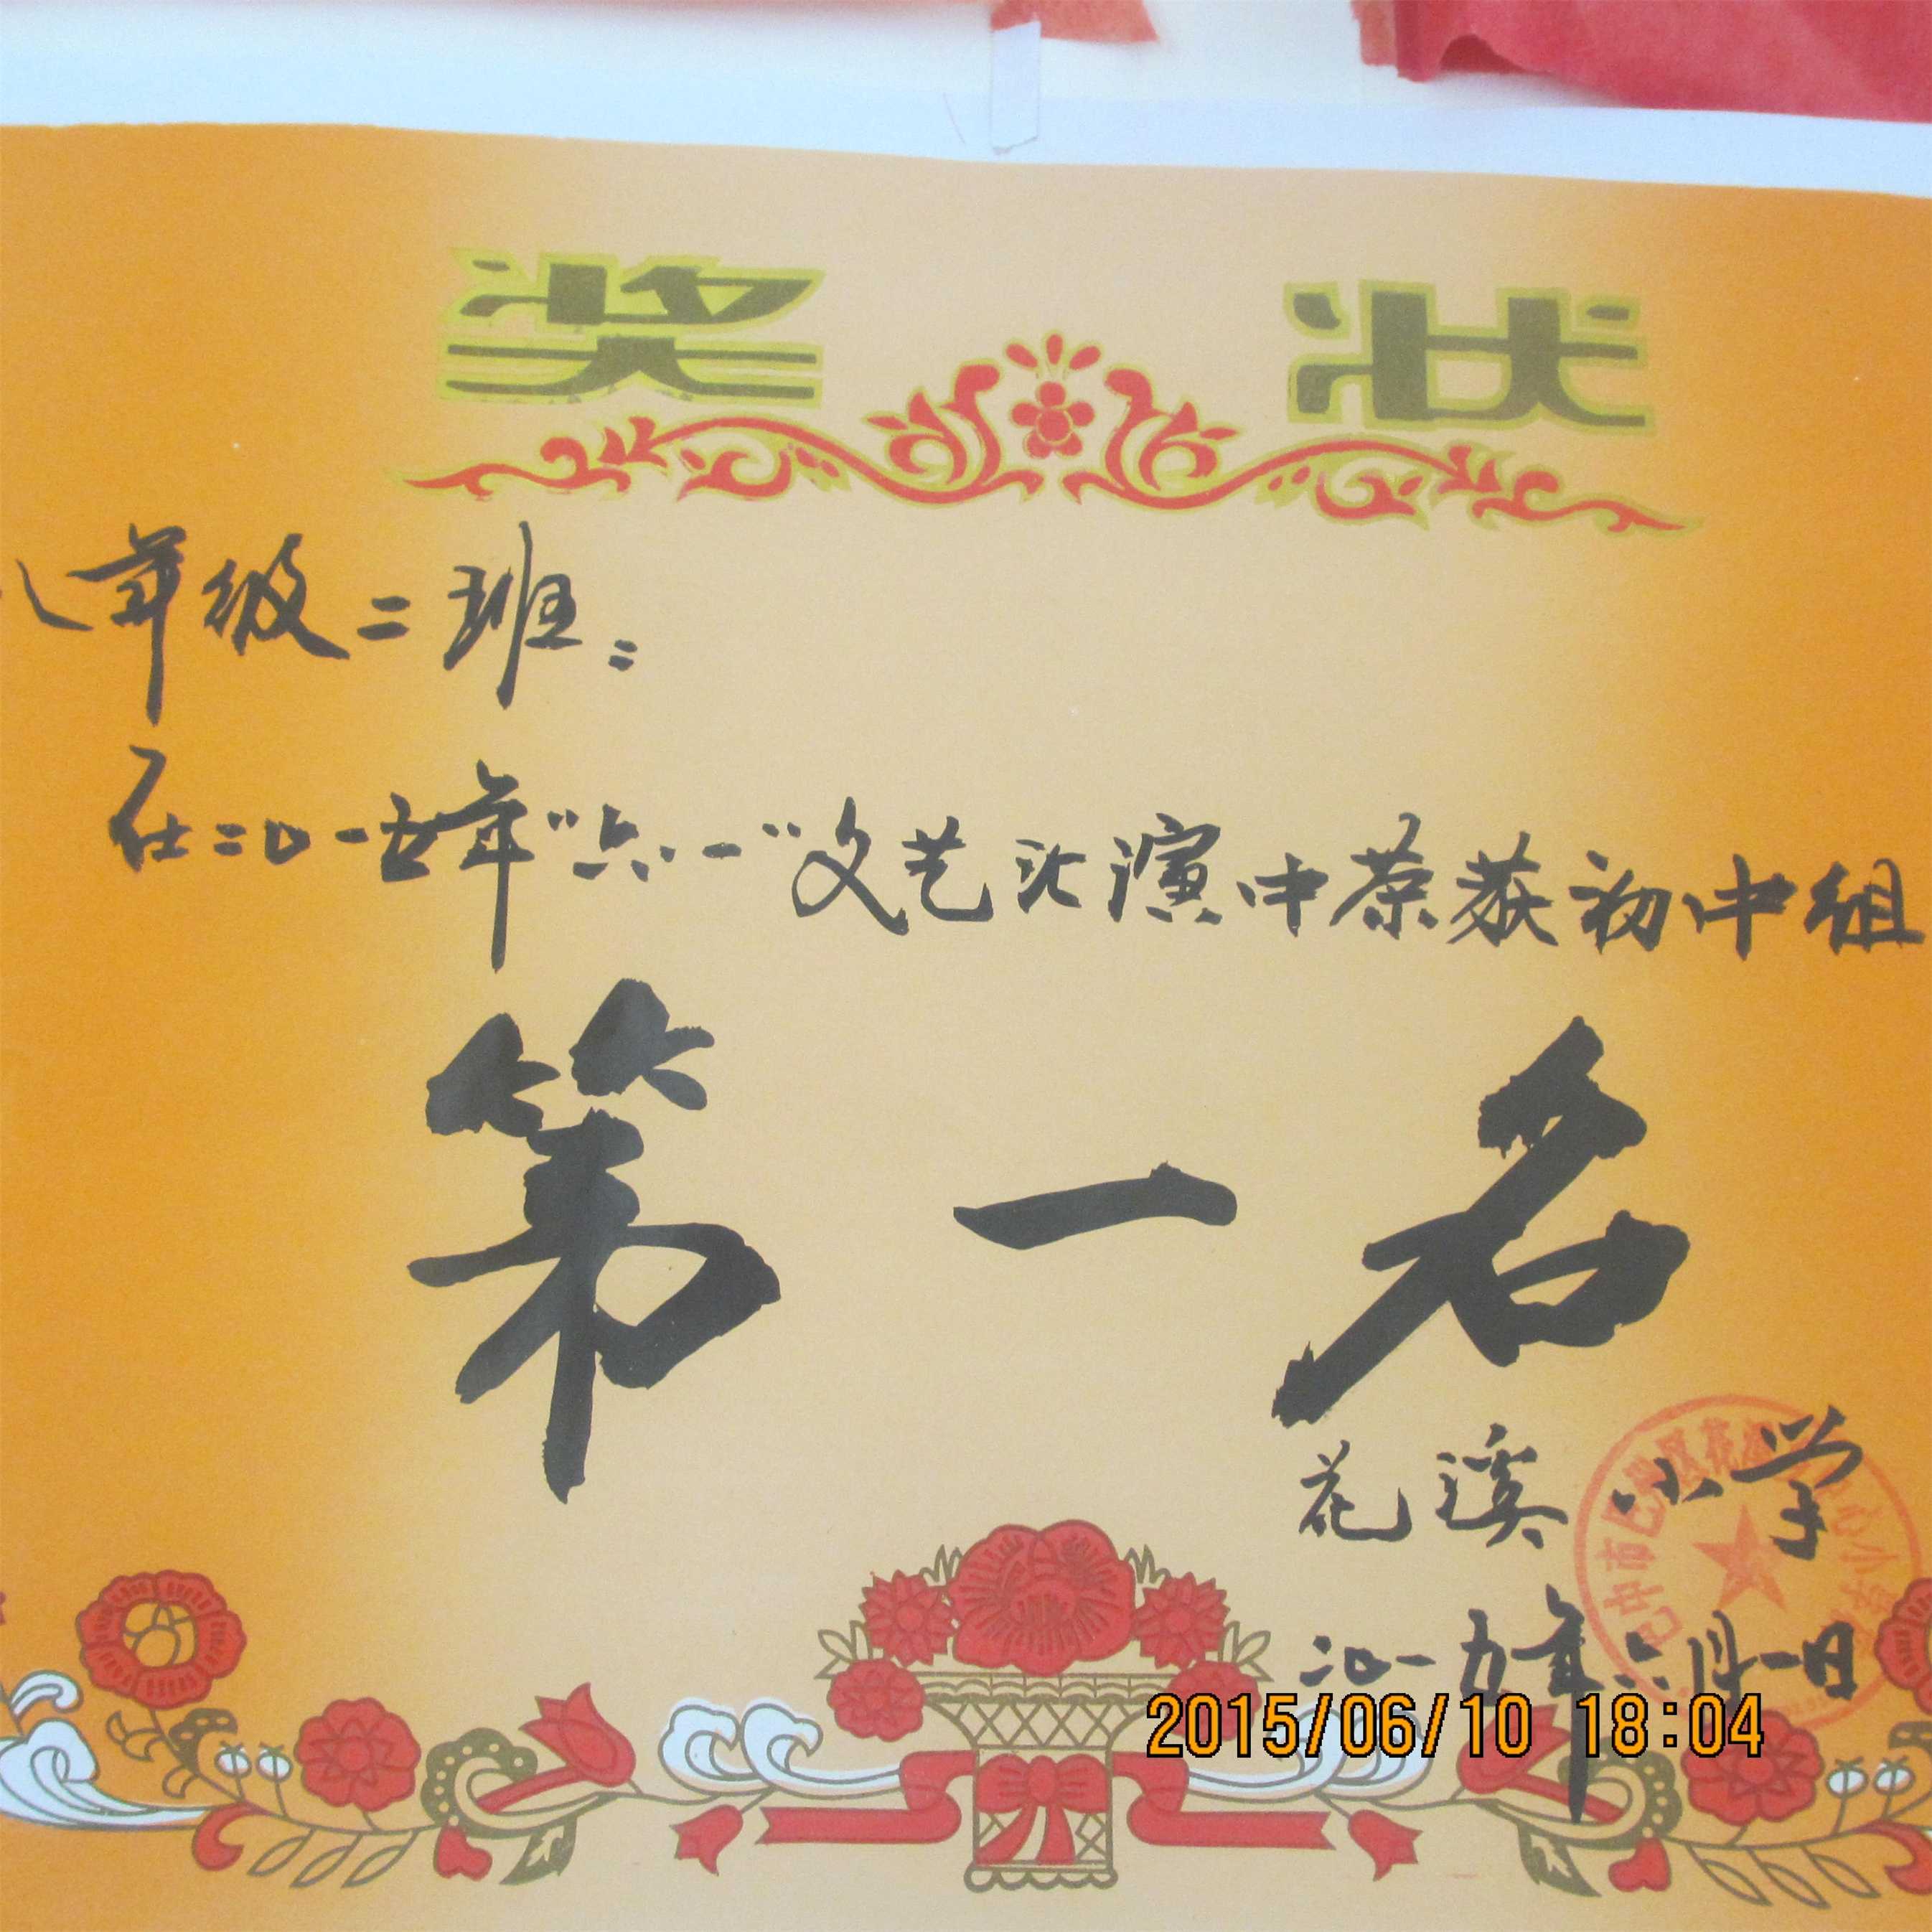 奖状
八年级二班:
在二〇一五年“六·一”文艺汇演中荣获初中组
第一名
花溪小学
二〇一五年六月一日
2015/06/10 18:04